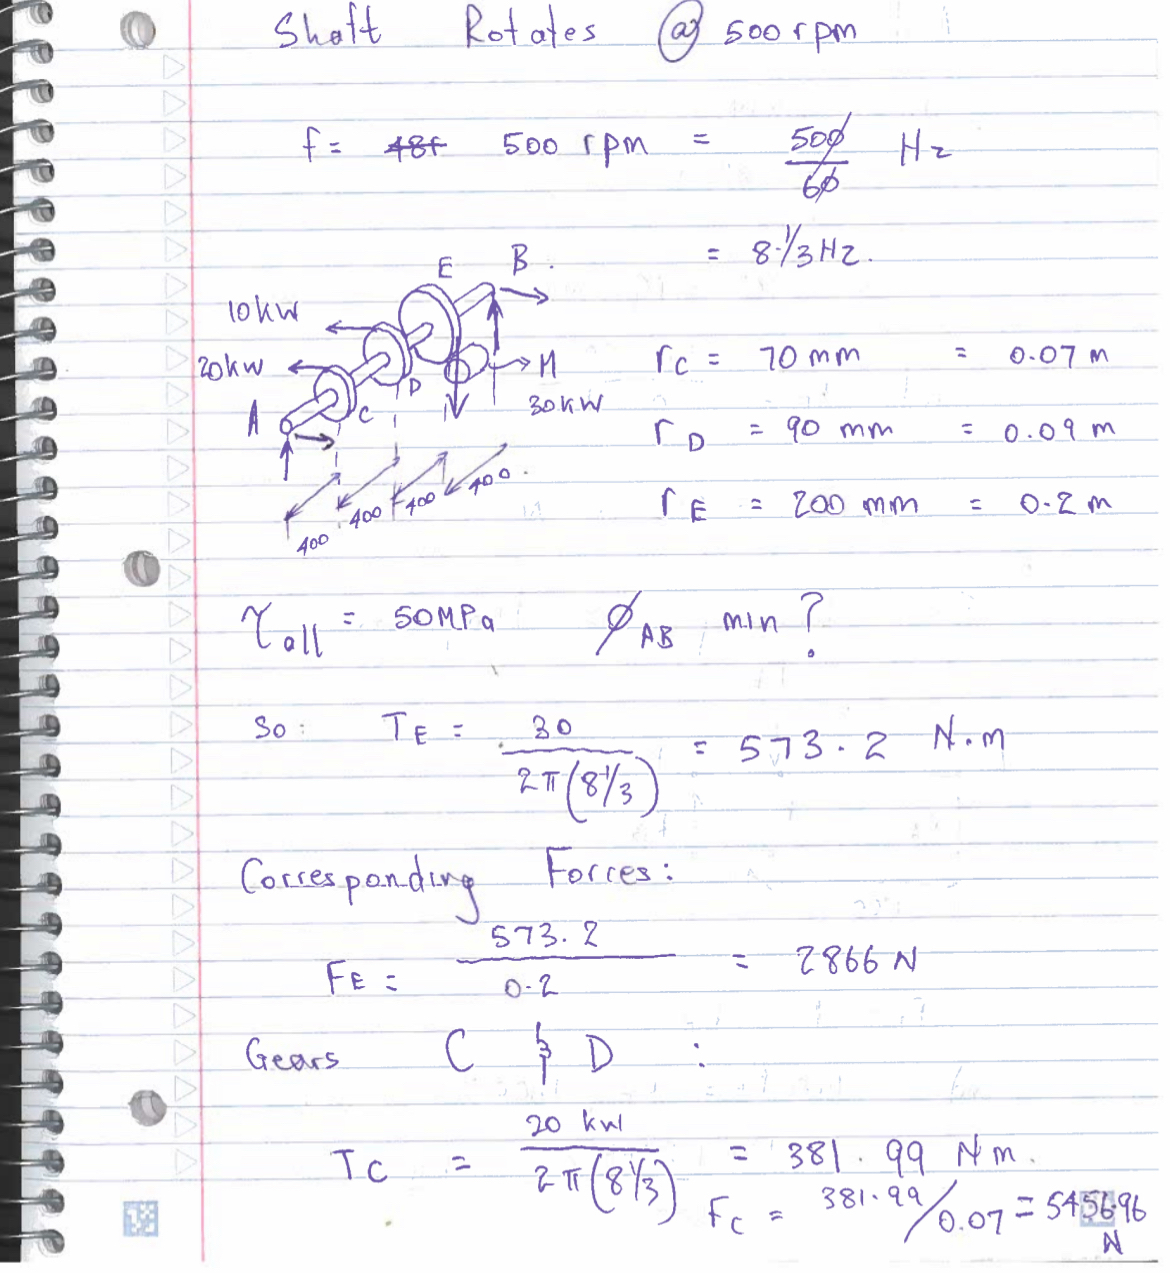 Shaft Rotates @ 500 rpm
f = 500 rpm = 500/60 Hz
= 8 1/3 Hz.
E B.
10kW
20kW
A C D M
30kW
400 400 400 400
rC = 70 mm = 0.07 m
rD = 90 mm = 0.09 m
rE = 200 mm = 0.2 m
τall = 50MPa ØAB min?
So: TE = 30 / 2π(8 1/3) = 573.2 N.m
Corresponding Forces:
FE = 573.2 / 0.2 = 2866 N
Gears C & D :
TC = 20 kW / 2π(8 1/3) = 381.99 Nm.
FC = 381.99/0.07 = 5456.96 N